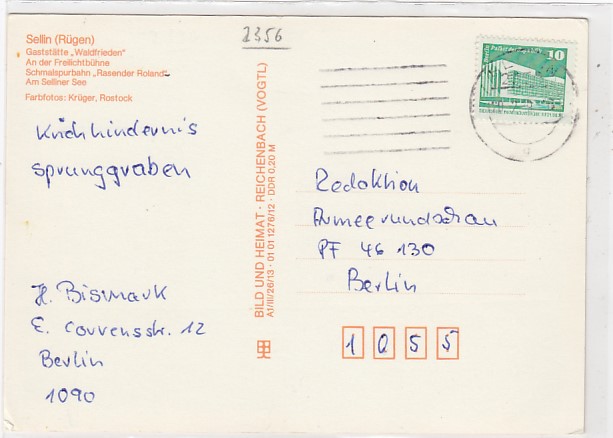 2356
Sellin (Rügen)
Gaststätte „Waldfrieden"
An der Freilichtbühne
Schmalspurbahn „Rasender Roland"
Am Selliner See
Farbfotos: Krüger, Rostock
10
sprunggraben
H. Bismark
E. Corrensstr. 12
Berlin
1090
BILD UND HEIMAT · REICHENBACH (VOGTL)
A1/III/26/13 · 01 01 1276/12 · DDR 0,20 M
Redaktion
Armeerundschau
PF 46 130
Berlin
1055